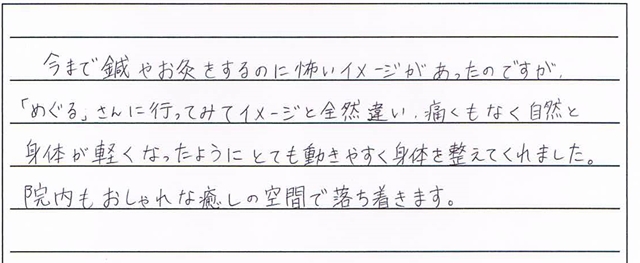 今まで鍼やお灸をするのに怖いイメージがあったのですが、
「めぐる」さんに行ってみてイメージと全然違い、痛くもなく自然と
身体が軽くなったようにとても動きやすく身体を整えてくれました。
院内もおしゃれな癒しの空間で落ち着きます。